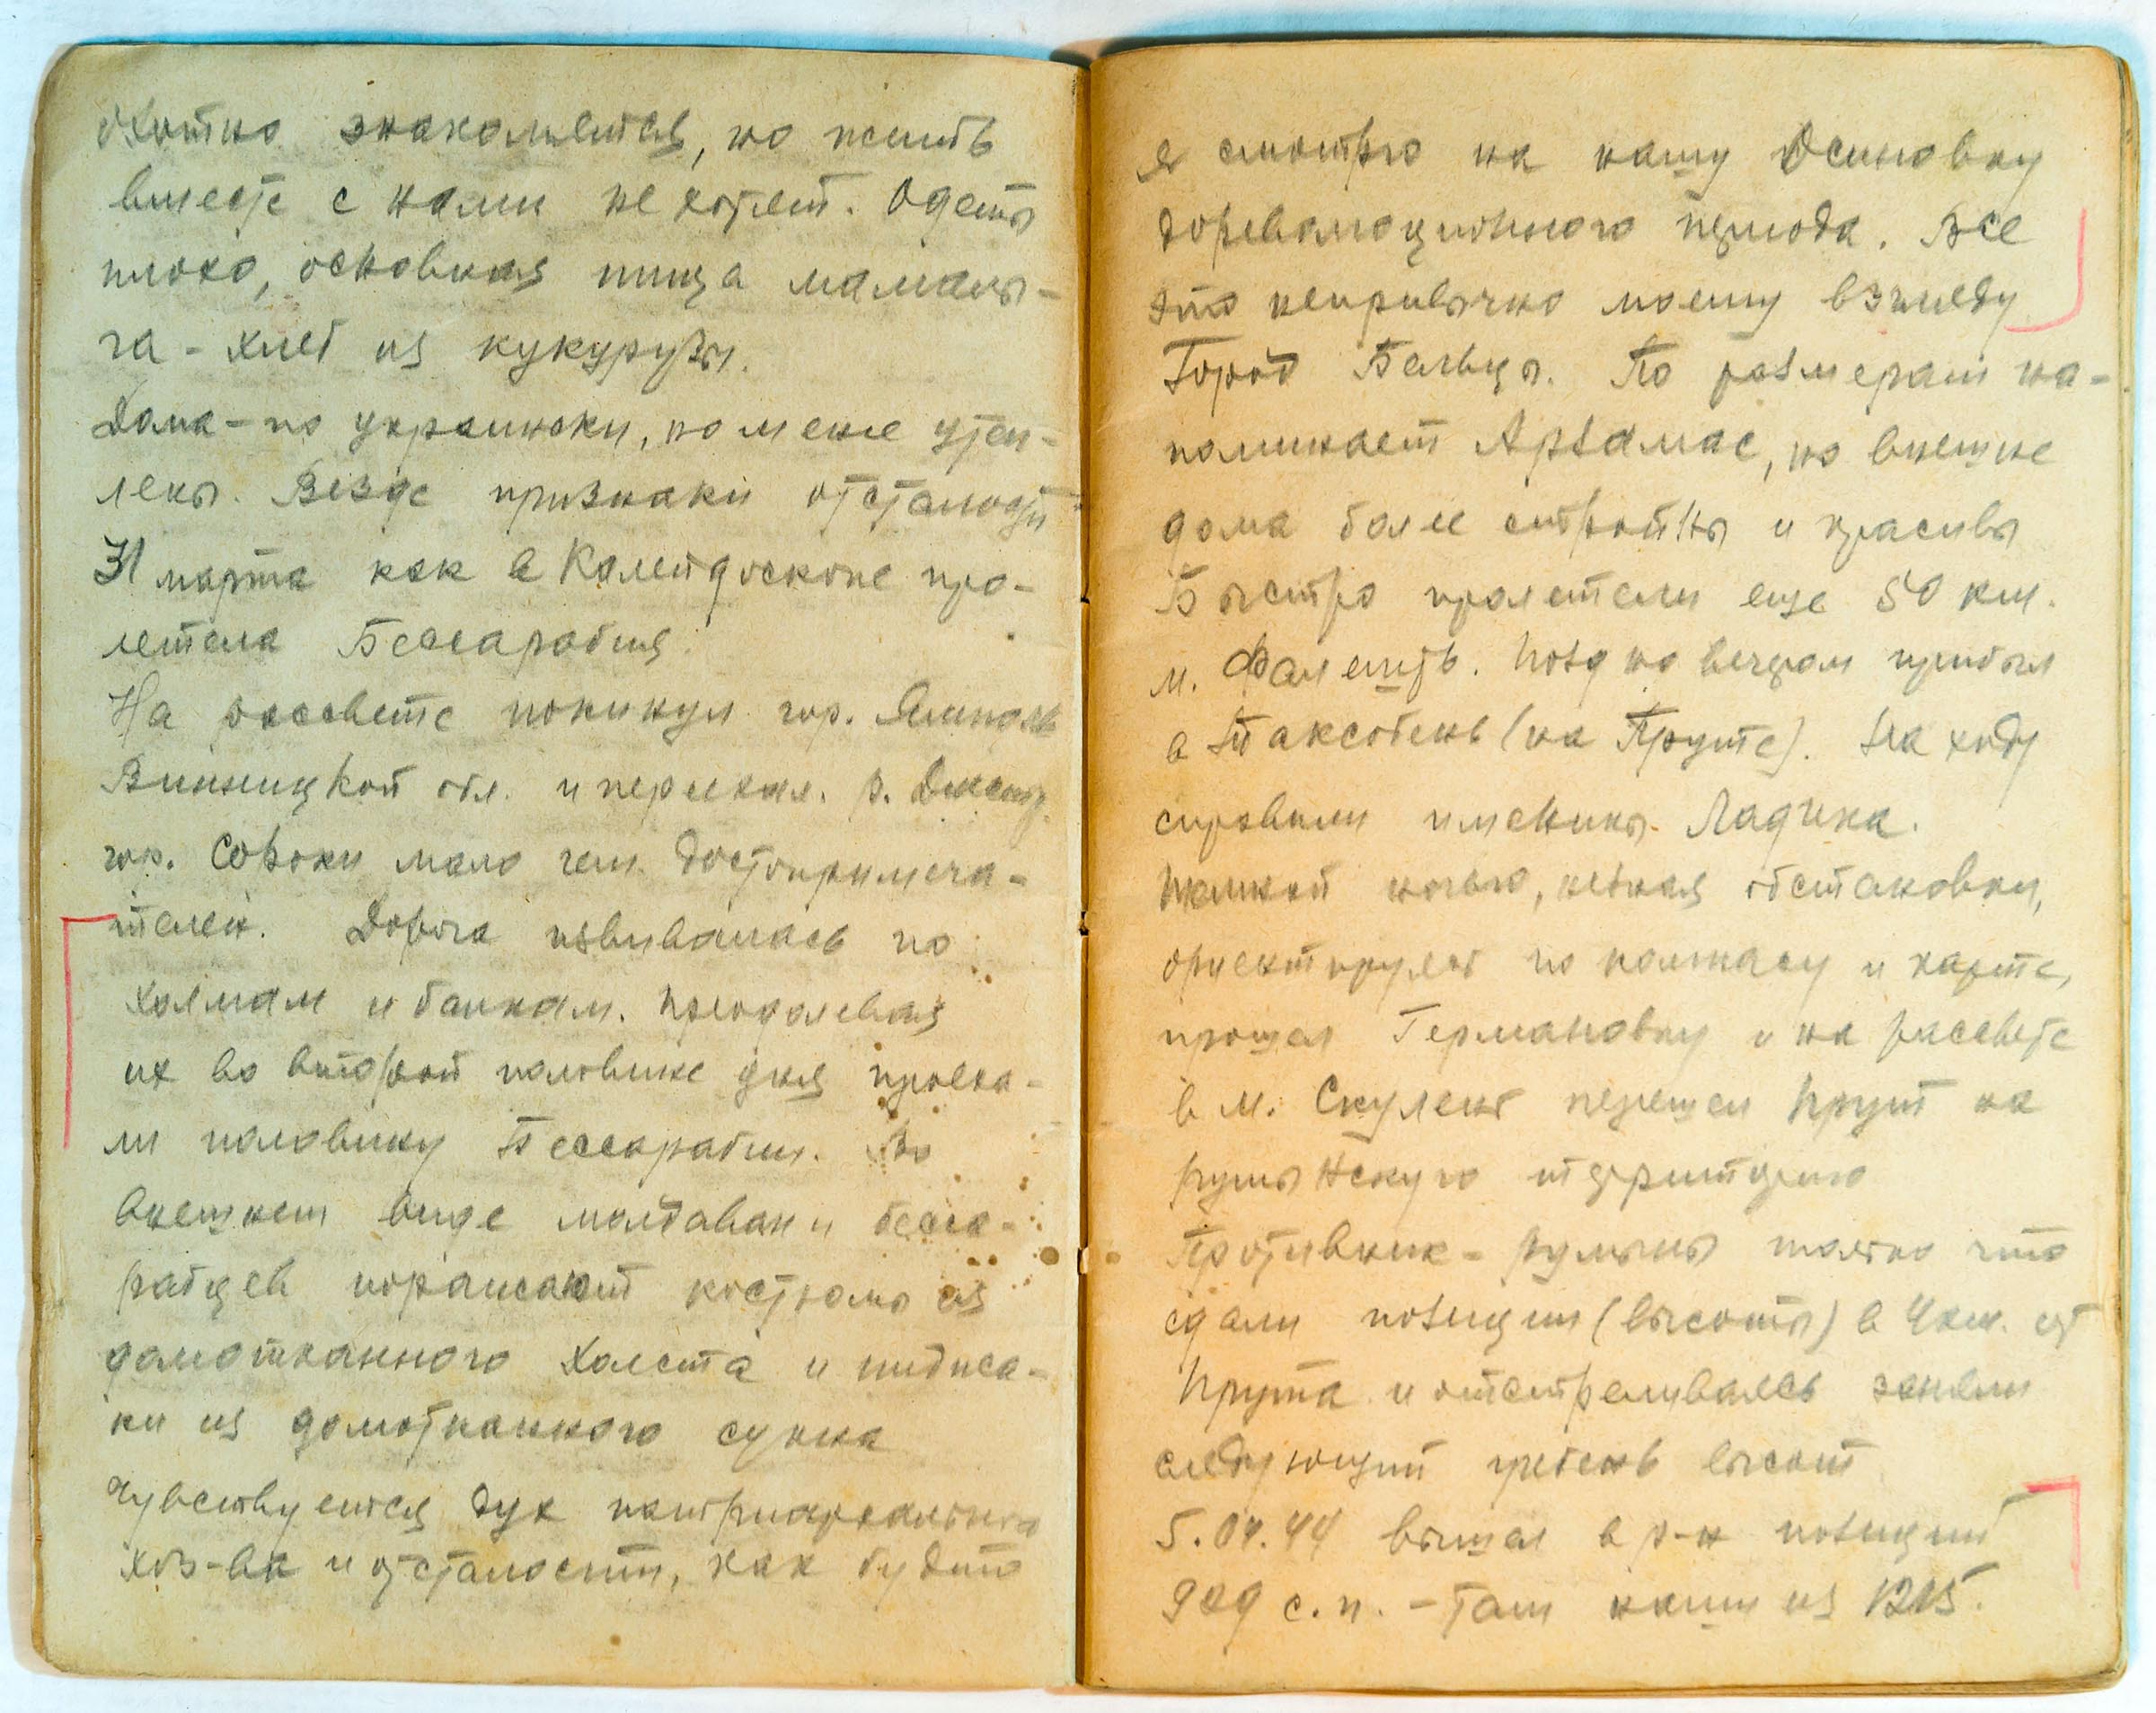 охотно знакомятся, но жить
вместе с нами не хотят. Одеты
плохо, основная пища мамалы-
га - хлеб из кукурузы.
Дома - по украински, но менее утеп-
лены. Везде признаки отсталости
31 марта как в калейдоскопе про-
летела Бессарабия.
На рассвете покинул гор. Ямполь
Винницкой обл. и переехал. р. Днестр.
гор. Сороки мало чем достопримеча-
телен. Дорога извивалась по
холмам и балкам. Преодолевая
их во второй половине дня проеха-
ли половину Бессарабии. Во
внешнем виде молдаван и бесса-
рабцев поражают костюмы из
домотканного холста и пиджа-
ки из домотканного сукна
Чувствуется дух патриархального
хоз-ва и отсталости, как будто
я смотрю на нашу Осиновку
дореволюционного периода. Все
это непривычно моему взгляду
Город Бельцы. По размерам на-
поминает Арзамас, но внешне
дома более стройны и красивы
Быстро пролетели еще 50 км.
м. Фалешть. Поздно вечером прибыл
в Таксобень (на Пруте). На ходу
справили именины Ладика.
Темной ночью, не зная обстановки,
ориентируясь по компасу и карте,
прошел Германовку и на рассвете
в м. Скулень перешел Прут на
румынскую территорию
Противник - румыны только что
сдали позиции (высоты) в 4 км. от
Прута и отстреливаясь заняли
следующий гребень высот
5.04.44 вышел в р-н позиций
909 с.п. - там наши из 1215.